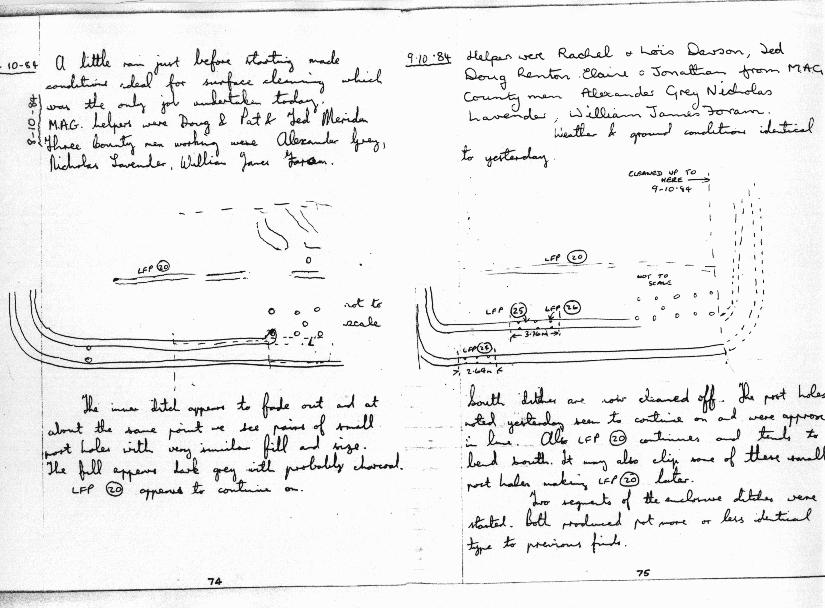 10-84
8-10-84
A little rain just before starting made
conditions ideal for surface cleaning which
was the only job undertaken today.
M.A.G. helpers were Doug & Pat & Ted Meriden
Three County men working were Alexander Grey,
Nicholas Lavender, William James Foram.
LFP 20
not to
scale
The inner ditch appears to fade out and at
about the same point we see pairs of small
post holes with very similar fill and size.
The fill appears dark grey with probably charcoal.
LFP 20 appears to continue on.
74
9.10.84
Helpers were Rachel & Lois Dawson, Ted
Doug Renton. Elaine & Jonathan from MAG
County men Alexander Grey Nicholas
Lavender, William James Foram.
Weather & ground conditions identical
to yesterday.
CLEANED UP TO
HERE
9-10-84
LFP 20
NOT TO
SCALE
LFP 25 LFP 26
3.76m
LFP 25
2.64m
South ditches are now cleaned off. The post holes
noted yesterday seem to continue on and were approx
in line. Also LFP 20 continues and tends to
bend south. It may also clip some of these small
post holes making LFP 20 later.
Two segments of the enclosure ditches were
started. Both produced pot more or less identical
type to previous finds.
75